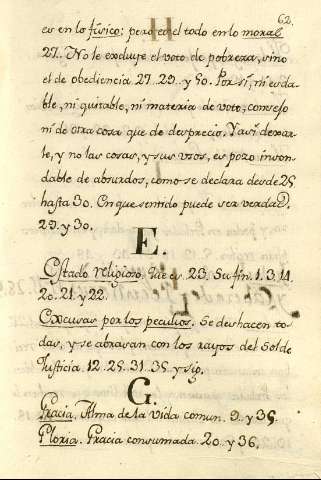 62.
es en lo fisico; pero es el todo en lo moral
27. No le excluye el voto de pobreza, sino
el de obediencia 27. 29. y 50. Por si, ni es da-
ble, ni quitable, ni materia de voto, consejo
ni de otra cosa que de desprecio. Y asi
te, y no las cosas, y sus usos, es pozo inson-
dable de absurdos, como se declara desde 25
hasta 30. En que sentido puede ser verdad.
29. y 30.
E.
Estado religioso. Que es. 23. Su fin. 1. 3. 14.
20. 21. y 22.
Excusas por los peculios. Se deshacen to-
das, y se abrasan con los rayos del Sol de
Justicia. 12. 25. 31. 35. y sig.
G.
Gracia. Alma de la vida comun. 9. y 35.
Gloria. Gracia consumada. 20. y 36.